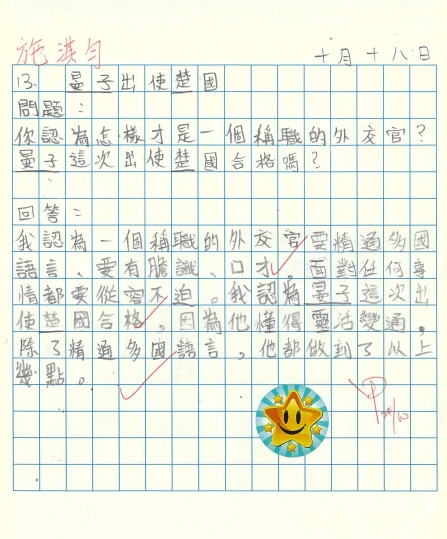 施淇勻
十月十八日
13. 晏子出使楚國
問題：
你認為怎樣才是一個稱職的外交官？
晏子這次出使楚國合格嗎？
回答：
我認為一個稱職的外交官要精通多國
語言、要有膽識、口才，面對任何事
情都要從容不迫。我認為晏子這次出
使楚國合格，因為他懂得靈活變通，
除了精通多國語言，他都做到了以上
幾點。